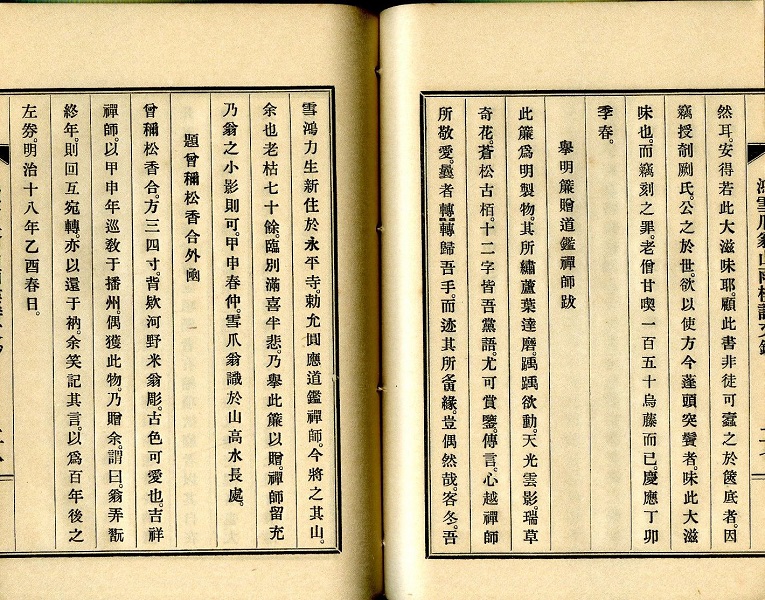 然耳。安得若此大滋味耶。顧此書非徒可蠹之於篋底者。因
竊授剞劂氏。公之於世。欲以使方今蓬頭突鬢者。味此大滋
味也。而竊刻之罪。老僧甘喫一百五十烏藤而已。慶應丁卯
季春。
擧明簾贈道鑑禪師跋
此簾爲明製物。其所繡蘆葉達磨。踽踽欲動。天光雲影。瑞草
奇花。蒼松古栢。十二字皆吾黨語。尤可賞鑒。傳言。心越禪師
所敬愛。曩者轉轉歸吾手。而迹其所畜緣。豈偶然哉。客冬。吾
雪鴻力生新住於永平寺。勅允圓應道鑑禪師。今將之其山。
余也老枯七十餘。臨別滿喜半悲。乃擧此簾以贈。禪師留充
乃翁之小影則可。甲申春仲。雪爪翁識於山高水長處。
題曾稱松香合外凾
曾稱松香合。方三四寸。背欵河野米翁彫。古色可愛也。吉祥
禪師。以甲申年巡敎于播州。偶獲此物。乃贈余。謂曰。翁弄翫
終年。則回互宛轉。亦以還于衲。余笑記其言。以爲百年後之
左劵。明治十八年乙酉春日。